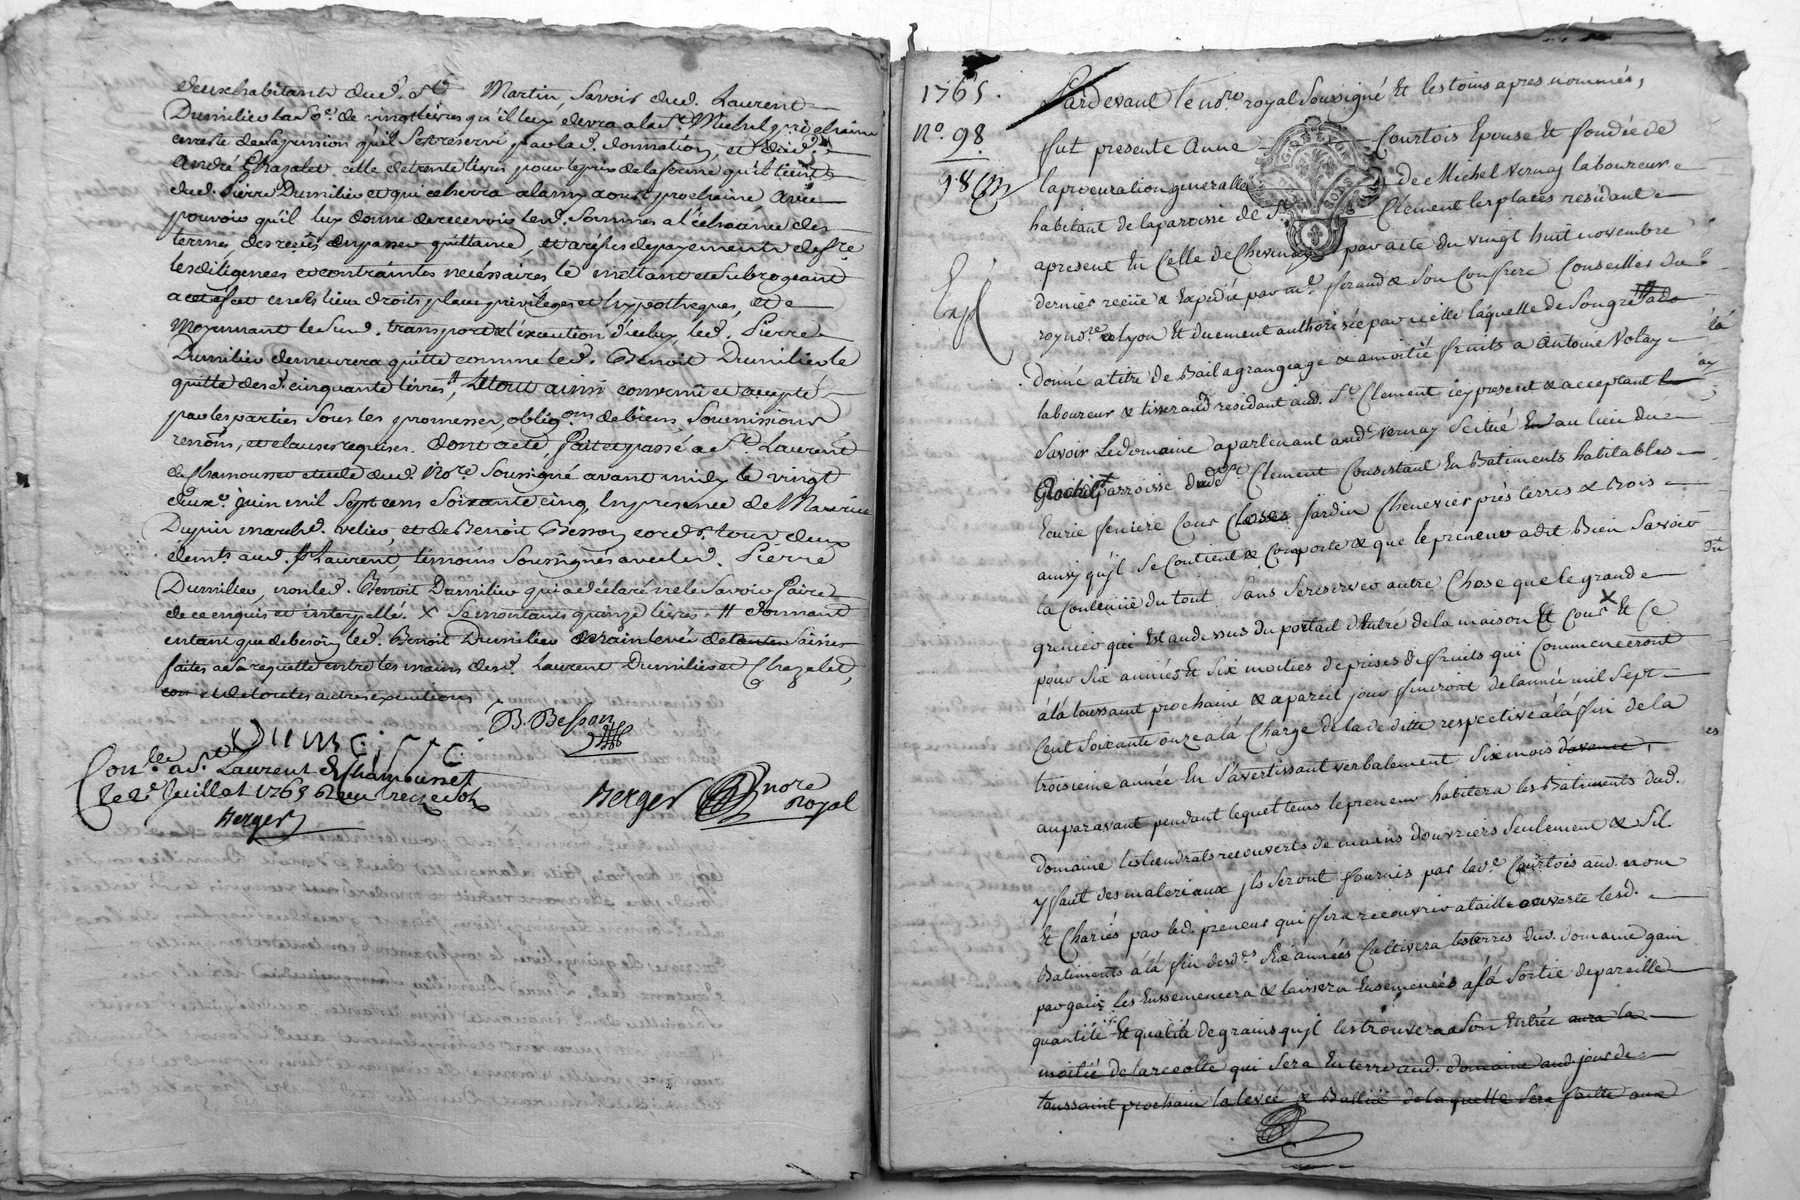 deux habitants dud. St Martin, Savoir dud. Laurent
Dumilieu la So.e de vingt livres qu'il luy devra a la St. Michel prochaine
en reste de la pension qu'il s'est reservé par lad. donnation et dud.
André Chazalet, celle de trente livres pour le prix de la ferme qu'il tient
dud. Pierre Dumilieu et qui echerra a la my aoust prochaine, avec
pouvoir qu'il luy donne de recevoir lesd. Sommes a l'écheance des
termes, des reçus en passer quittance, et a refus de payement de f.re
les diligences et contraintes nécessaires le mettant et Subrogeant
a cet effet en ses lieu droits place privileges et hypotheques, et
Moyennant le Sud. transport et l'éxecution d'iceluy, led. Pierre
Dumilieu demeurera quitte comme led. Benoit Dumilieu le
quitte desd. cinquante livres, le tout ainsi convenu et accepté
par les parties Sous les promesses, oblig.ons de biens, Soumissions
renôns, et clauses requises. dont acte, fait et passé a St. Laurent
de Chamousset etude dud. No.re Soussigné avant midy le vingt
deux.e juin mil Sept cens Soixante cinq, En presence de
Dupin march.d velier, et de Benoit Besson cord.r tous deux
dem.ts aud. St Laurent, témoins Soussignés avec led. Pierre
Dumilieu, non led. Benoit Dumilieu qui a déclaré ne le Savoir faire
de ce enquis et interpellé. X Se montant quinze livres. # donnant
entant que de besoin led. Benoit Dumilieu main levée de Saisies
faites a Sa requette entre les mains desd. Laurent Dumilieu et Chazalet,
et de toutes autres executions
B. Besson
Con.lle a St. Laurent de Chamousset
le 2e Juillet 1765 Reçu treize sols
Berger
Berger nore
Royal
1765.
No. 98.
98
Expé
Pardevant le no.re royal Soussigné Et les temoins apres nommés,
fut presente Anne Courtois Epouse Et fondée de
la procuration generalle de Michel Vernay laboureur
habitant de la paroisse de St Clement les places residant
apresent En Celle de par acte du vingt huit novembre
dernier reçüe & Expedié par m.e ferand & Son Confrere Conseiller du
roy no.re a lyon Et duement authorisée par icelle laquelle de Son gré
donné a titre de Bail a grangeage & a moitié fruits a Antoine Volay
laboureur & tisserand residant aud. St Clement icy present & acceptant
Savoir Le domaine apartenant aud. Vernay Scitué au lieu du
parroisse dud. St Clement Consistant En Batiments habitables
Ecurie feniere Cour Jardin Chenevier prés terres & Bois
ainsy qu'jl Se Contient & Comporte & que le preneur a dit Bien Savoir
la Contenüe du tout Sans Se reserver autre Chose que le grand
grenier qui Est au dessus du portail d'Entrée de la maison Et Cour X Et Ce
pour Six années Et Six moities de prises de fruits qui Commenceront
á lá toussaint prochaine & a pareil jour finiront de lannée mil Sept
Cent Soixante onze a lá Charge de la de ditte respective á lá fin de la
troisieme année En S'avertissant verbalement Six mois d'avance
auparavant pendant lequel tems le preneur habitera les Batiments dud.
domaine les tiendra recouverts de mains d'ouvriers Seulement & Sil
y faut des materiaux jls Seront fournis par la d.e Courtois aud. nom
Et Chariés par led. preneur qui fera recouvrir a taille ouverte lesd.
Batiments á lá fin desd.es Six années Cultivera les terres dud. domaine gain
par gain les Ensemencera & laissera Ensemencées a lá Sortie de pareille
quantité Et qualité de grains qu'jl les trouvera a Son Entrée aura la
moitié de la recolte qui Sera En terre aud. domaine aud. jour de
toussaint prochain la levée & Battüe de laquelle Sera faitte aux